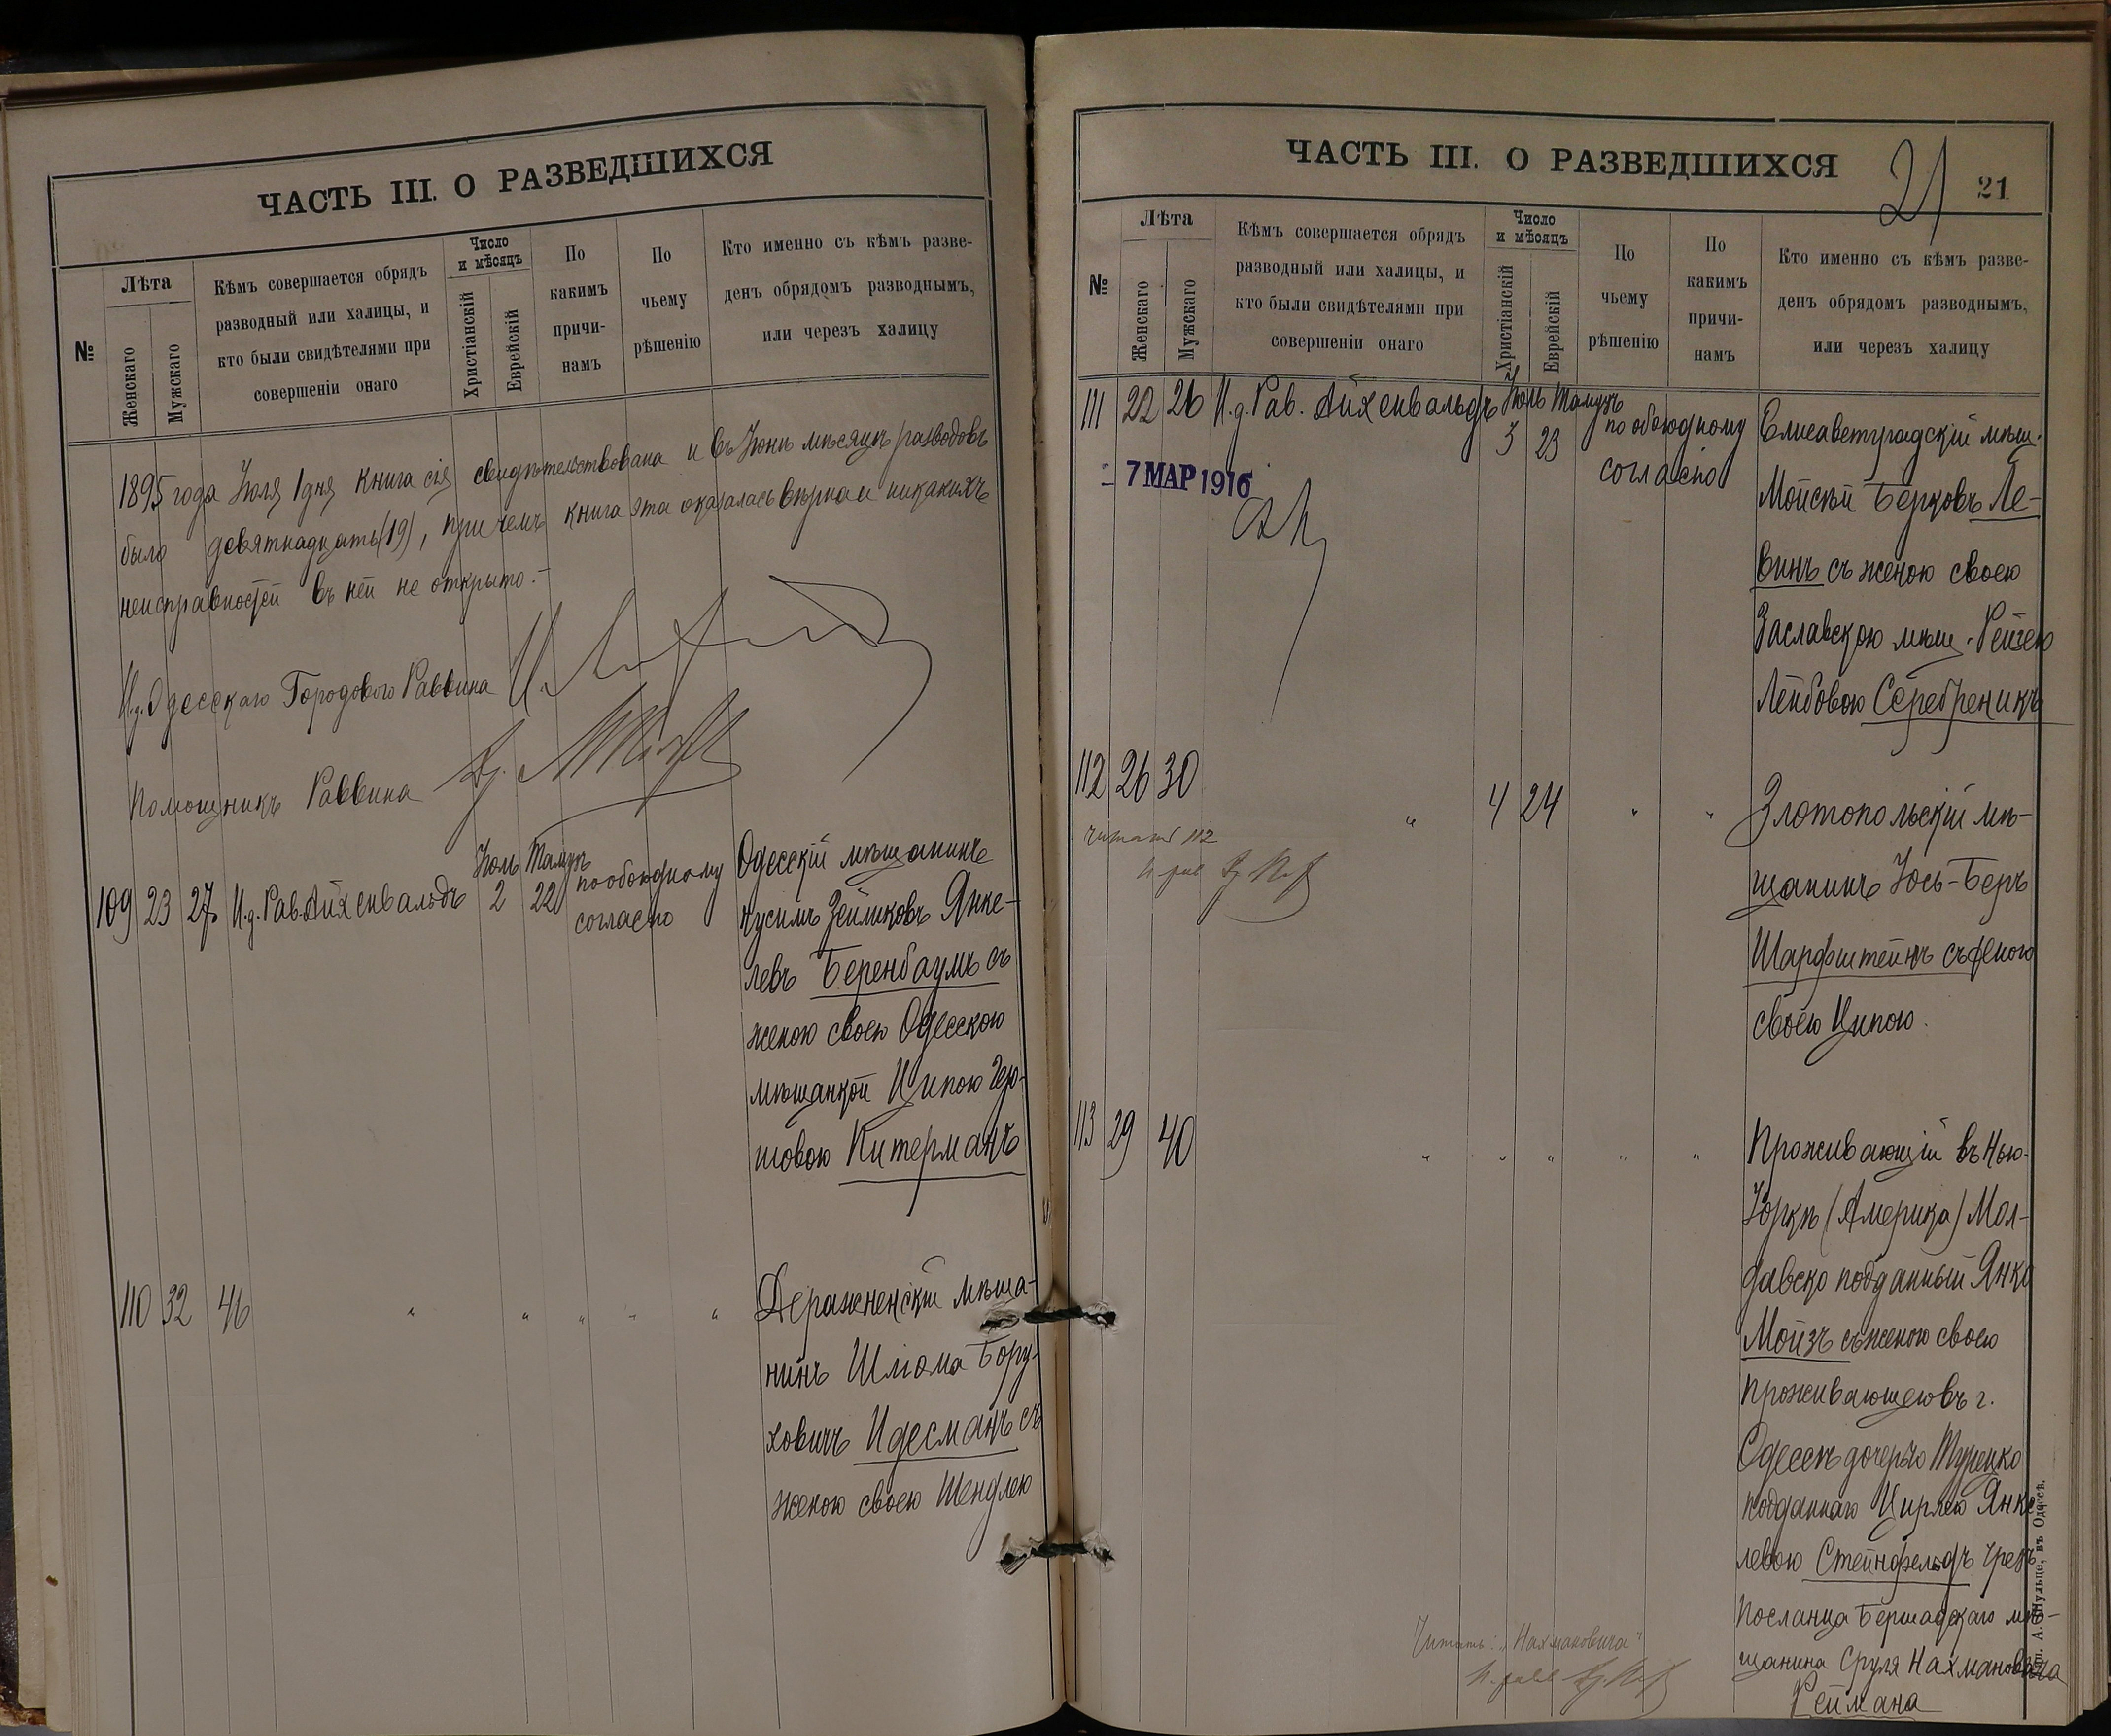 ЧАСТЬ III. О РАЗВЕДШИХСЯ
№
Лѣта
Женскаго
Мужскаго
Кѣмъ совершается обрядъ
разводный или халицы, и
кто были свидѣтелями при
совершеніи онаго
Число
и мѣсяцъ
Христіанскій
Еврейскій
По
какимъ
причи-
намъ
По
чьему
рѣшенію
Кто именно съ кѣмъ разве-
денъ обрядомъ разводнымъ,
или черезъ халицу
1895 года Іюля 1 дня книга сія свидѣтельствована и въ Іюнѣ мѣсяцѣ разводовъ
было девятнадцать (19), при чемъ книга эта оказалась вѣрна и никакихъ
неисправностей въ ней не открыто.-
И.д. Одесскаго Городового Раввина
Помощникъ Раввина
109 23 27 И.д. Рав. Айхенвальдъ
Іюль Тамузъ
2 22
по обоюдному
согласію
Одесскій мѣщанинъ
Нусимъ Зейликовъ Янке-
левъ Беренбаумъ съ
женою своею Одесскою
мѣщанкой Ципою Гер-
шовою Питерманъ
110 32 46 " " " " "
Деражненскій мѣща-
нинъ Шлома Бору-
ховичъ Идесманъ съ
женою своею Шендлею
ЧАСТЬ III. О РАЗВЕДШИХСЯ
21 21
№
Лѣта
Женскаго
Мужскаго
Кѣмъ совершается обрядъ
разводный или халицы, и
кто были свидѣтелями при
совершеніи онаго
Число
и мѣсяцъ
Христіанскій
Еврейскій
По
чьему
рѣшенію
По
какимъ
причи-
намъ
Кто именно съ кѣмъ разве-
денъ обрядомъ разводнымъ,
или черезъ халицу
111 22 26 И.д. Рав. Айхенвальдъ
Іюль Тамузъ
3 23
по обоюдному
согласію
- 7 МАР 1916
Елисаветградскій мѣщ.
Мойсей Берковъ Ле-
винъ съ женою своею
Заславскою мѣщ. Рейзею
Лейбовою Серебреникъ
112 26 30 " 4 24 " "
читать 112
Злотопольскій мѣ-
щанинъ Іось-Беръ
Шарфштейнъ съ женою
своею Ципою.
113 29 40 " " " " "
Проживающій въ Нью-
Іоркѣ (Америка) Мол-
давско подданный Янко
Мойзъ съ женою своею
проживающею въ г.
Одессѣ дочерью Турецко
подданнаго Цирлею Янке-
левою Стейнфельдъ чрезъ
посланца Бершадскаго мѣ-
щанина Сруля Нахмановича
Реймана
Читать: "Нахмановича"
Тип. А. Шульце, въ Одессѣ.